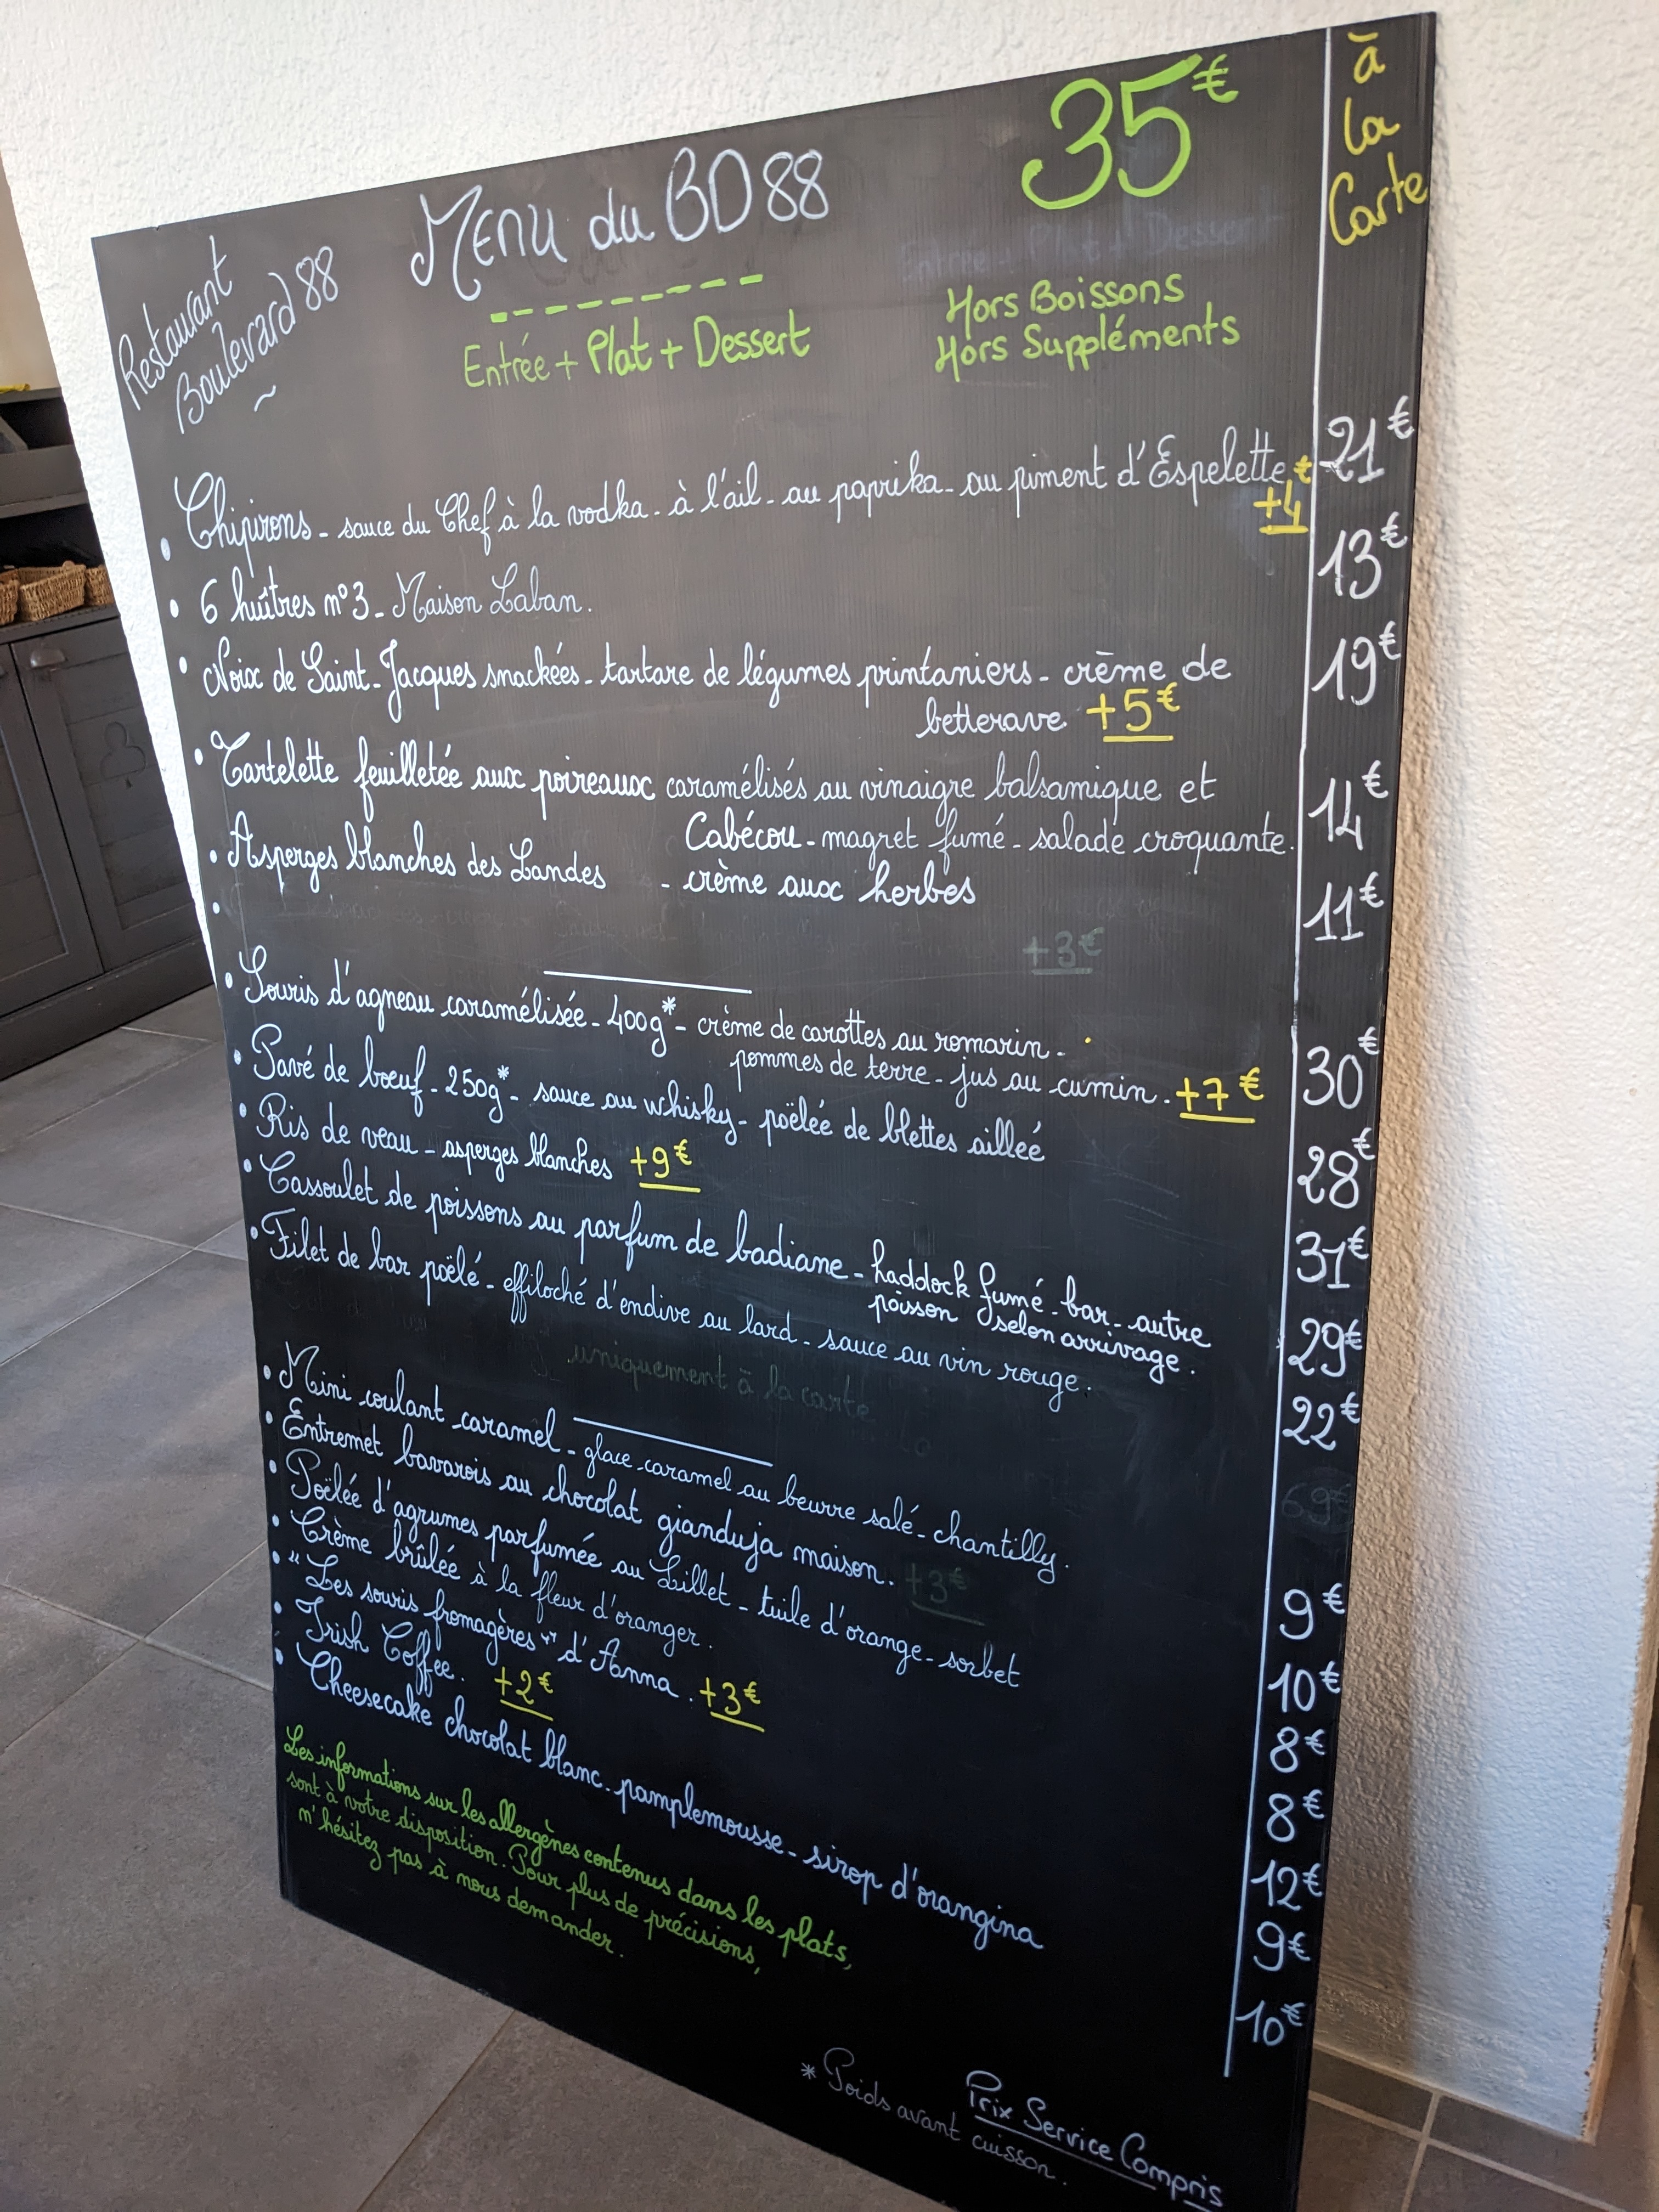 Restaurant
Boulevard 88
~
Menu du BD88
35€
à
la
Carte
Entrée + Plat + Dessert
Hors Boissons
Hors Suppléments
• Chipirons - sauce du Chef à la vodka - à l'ail - au paprika - au piment d'Espelette +4€ 21€
• 6 huîtres n°3 - Maison Laban. 13€
• Noix de Saint-Jacques snackées - tartare de légumes printaniers - crème de 19€
betterave +5€
• Tartelette feuilletée aux poireaux caramélisés au vinaigre balsamique et 14€
Cabécou - magret fumé - salade croquante.
• Asperges blanches des Landes - crème aux herbes 11€
+3€
• Souris d'agneau caramélisée - 400g* - crème de carottes au romarin - 30€
pommes de terre - jus au cumin. +7€
• Pavé de bœuf - 250g* - sauce au whisky - poëlée de blettes ailleé 28€
• Ris de veau - asperges blanches +9€ 31€
• Cassoulet de poissons au parfum de badiane - haddock fumé - bar - autre 29€
poisson selon arrivage.
• Filet de bar poëlé - effiloché d'endive au lard - sauce au vin rouge. 22€
uniquement à la carte
69€
• Mini coulant caramel - glace caramel au beurre salé - chantilly. 9€
• Entremet bavarois au chocolat gianduja maison. +3€ 10€
• Poëlée d'agrumes parfumée au Lillet - tuile d'orange - sorbet 8€
• Crème brûlée à la fleur d'oranger. 8€
• "Les souris fromagères" d'Anna. +3€ 12€
• Irish Coffee. +2€ 9€
• Cheesecake chocolat blanc - pamplemousse - sirop d'orangina 10€
Les informations sur les allergènes contenus dans les plats,
sont à votre disposition. Pour plus de précisions,
n'hésitez pas à nous demander.
Prix Service Compris
* Poids avant cuisson.